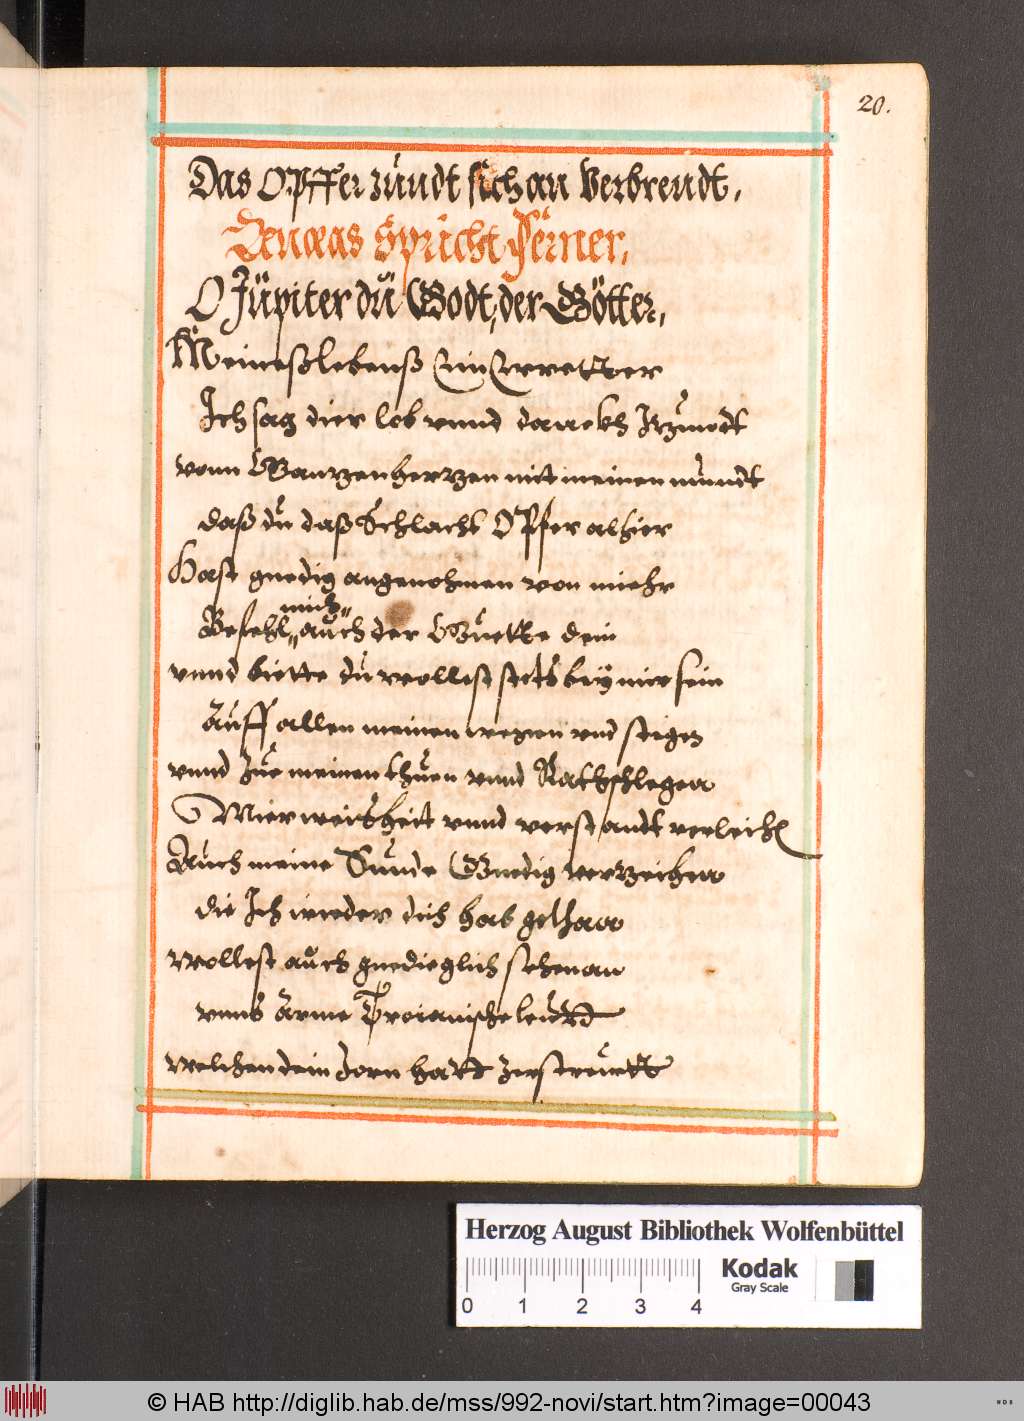 20.
Das Opffer zündt sich an Verbrendt,
Æneas Spricht Ferner,
O Jüpiter dü Godt, der Götter,
Meineß lebenß Ein Erretter
Ich sag dier lob vnnd danckh Itzŭndt
vonn Gantzen hertzen mit meinen mŭndt
daß dŭ daß Schlacht Opffer alhier
Hast gnedig angenohmen von miehr
mich
Befehl aŭch der Gŭette dein
vnnd biette dŭ wollest stets beÿ mir sein
Aŭff allen meinen wegen vnd stigen
vnnd Zŭe meinen thŭen vnnd Rathschlegen
Mier weisheit vnnd verstandt verleichen
Aŭch meine Sŭnde Gnedig vertzeihen
die Ich wieder dich hab gethan
wollest aŭch gnedieglich sehen an
vnns Arme Troianische leŭdt
welchen dein Zorn hatt zerstreŭett
Herzog August Bibliothek Wolfenbüttel
Kodak
Gray Scale
0 1 2 3 4
© HAB http://diglib.hab.de/mss/992-novi/start.htm?image=00043